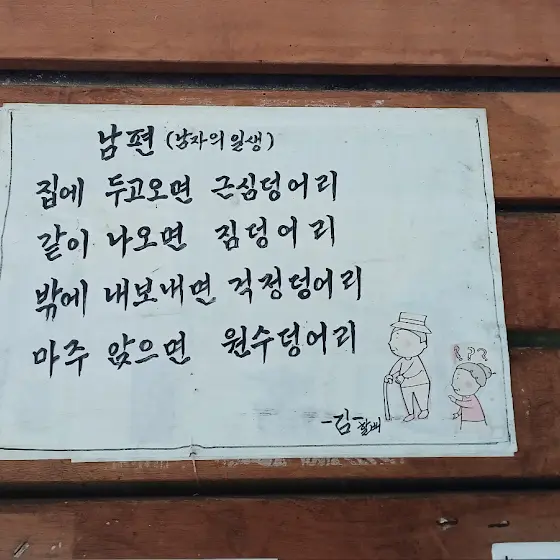 남편 (남자의 일생)
집에 두고오면 근심덩어리
같이 나오면 짐덩어리
밖에 내보내면 걱정덩어리
마주 앉으면 원수덩어리
???
-김-할배